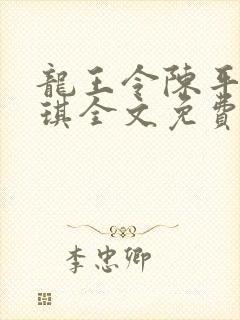 龍王令陳平
琪全文免費
李忠卿